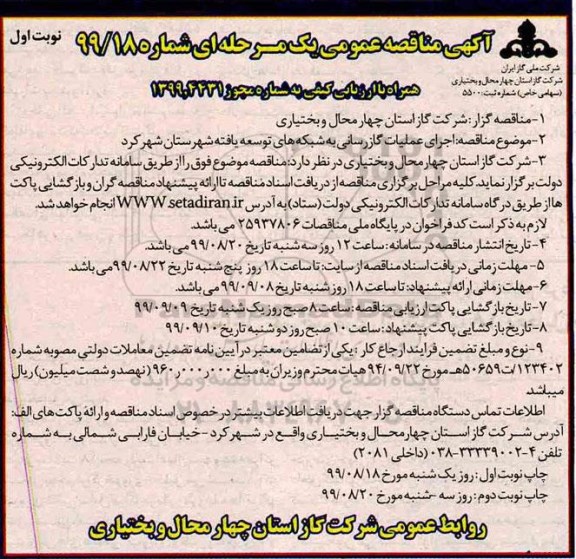 آگهی مناقصه عمومی یک مرحله ای شماره ۹۹/۱۸
نوبت اول
شرکت ملی گاز ایران
شرکت گاز استان چهارمحال و بختیاری
(سهامی خاص) شماره ثبت: ۵۵۰۰
همراه با ارزیابی کیفی به شماره مجوز ۱۳۹۹,۴۴۳۱
۱-مناقصه گزار: شرکت گاز استان چهار محال و بختیاری
۲-موضوع مناقصه: اجرای عملیات گازرسانی به شبکه های توسعه یافته شهرستان شهر کرد
۳-شرکت گاز استان چهار محال و بختیاری در نظر دارد: مناقصه موضوع فوق را از طریق سامانه تدارکات الکترونیکی
دولت برگزار نماید. کلیه مراحل برگزاری مناقصه از دریافت اسناد مناقصه تا ارائه پیشنهاد مناقصه گران و بازگشایی پاکت
ها از طریق درگاه سامانه تدارکات الکترونیکی دولت (ستاد) به آدرس WWW.setadiran.ir انجام خواهد شد.
لازم به ذکر است کد فراخوان در پایگاه ملی مناقصات ۲۵۹۳۷۸۰۶ می باشد.
۴- تاریخ انتشار مناقصه در سامانه: ساعت ۱۲ روز سه شنبه تاریخ ۹۹/۰۸/۲۰ می باشد.
۵- مهلت زمانی دریافت اسناد مناقصه از سایت: تا ساعت ۱۸ روز پنج شنبه تاریخ ۹۹/۰۸/۲۲ می باشد.
۶-مهلت زمانی ارائه پیشنهاد: تا ساعت ۱۸ روز شنبه تاریخ ۹۹/۰۹/۰۸ می باشد.
۷- تاریخ بازگشایی پاکت ارزیابی مناقصه : ساعت ۸ صبح روز یک شنبه تاریخ ۹۹/۰۹/۰۹
۸- تاریخ بازگشایی پاکت پیشنهاد: ساعت ۱۰ صبح روز دو شنبه تاریخ ۹۹/۰۹/۱۰
۹-نوع و مبلغ تضمین فرایند ارجاع کار : یکی از تضامین معتبر در آیین نامه تضمین معاملات دولتی مصوبه شماره
۱۲۳۴۰۲/ت۵۰۶۵۹هـ مورخ ۹۴/۰۹/۲۲ هیات محترم وزیران به مبلغ ۹۶۰,۰۰۰,۰۰۰ (نهصد و شصت میلیون) ریال
میباشد.
اطلاعات تماس دستگاه مناقصه گزار جهت دریافت اطلاعات بیشتر در خصوص اسناد مناقصه و ارائه پاکت های الف:
آدرس شرکت گاز استان چهار محال و بختیاری واقع در شهر کرد - خیابان فارابی شمالی به شماره
تلفن ۴-۳۳۳۳۹۰۰۲-۰۳۸ (داخلی ۲۰۸۱)
چاپ نوبت اول : روز یک شنبه مورخ ۹۹/۰۸/۱۸
چاپ نوبت دوم : روز سه -شنبه مورخ ۹۹/۰۸/۲۰
روابط عمومی شرکت گاز استان چهار محال و بختیاری